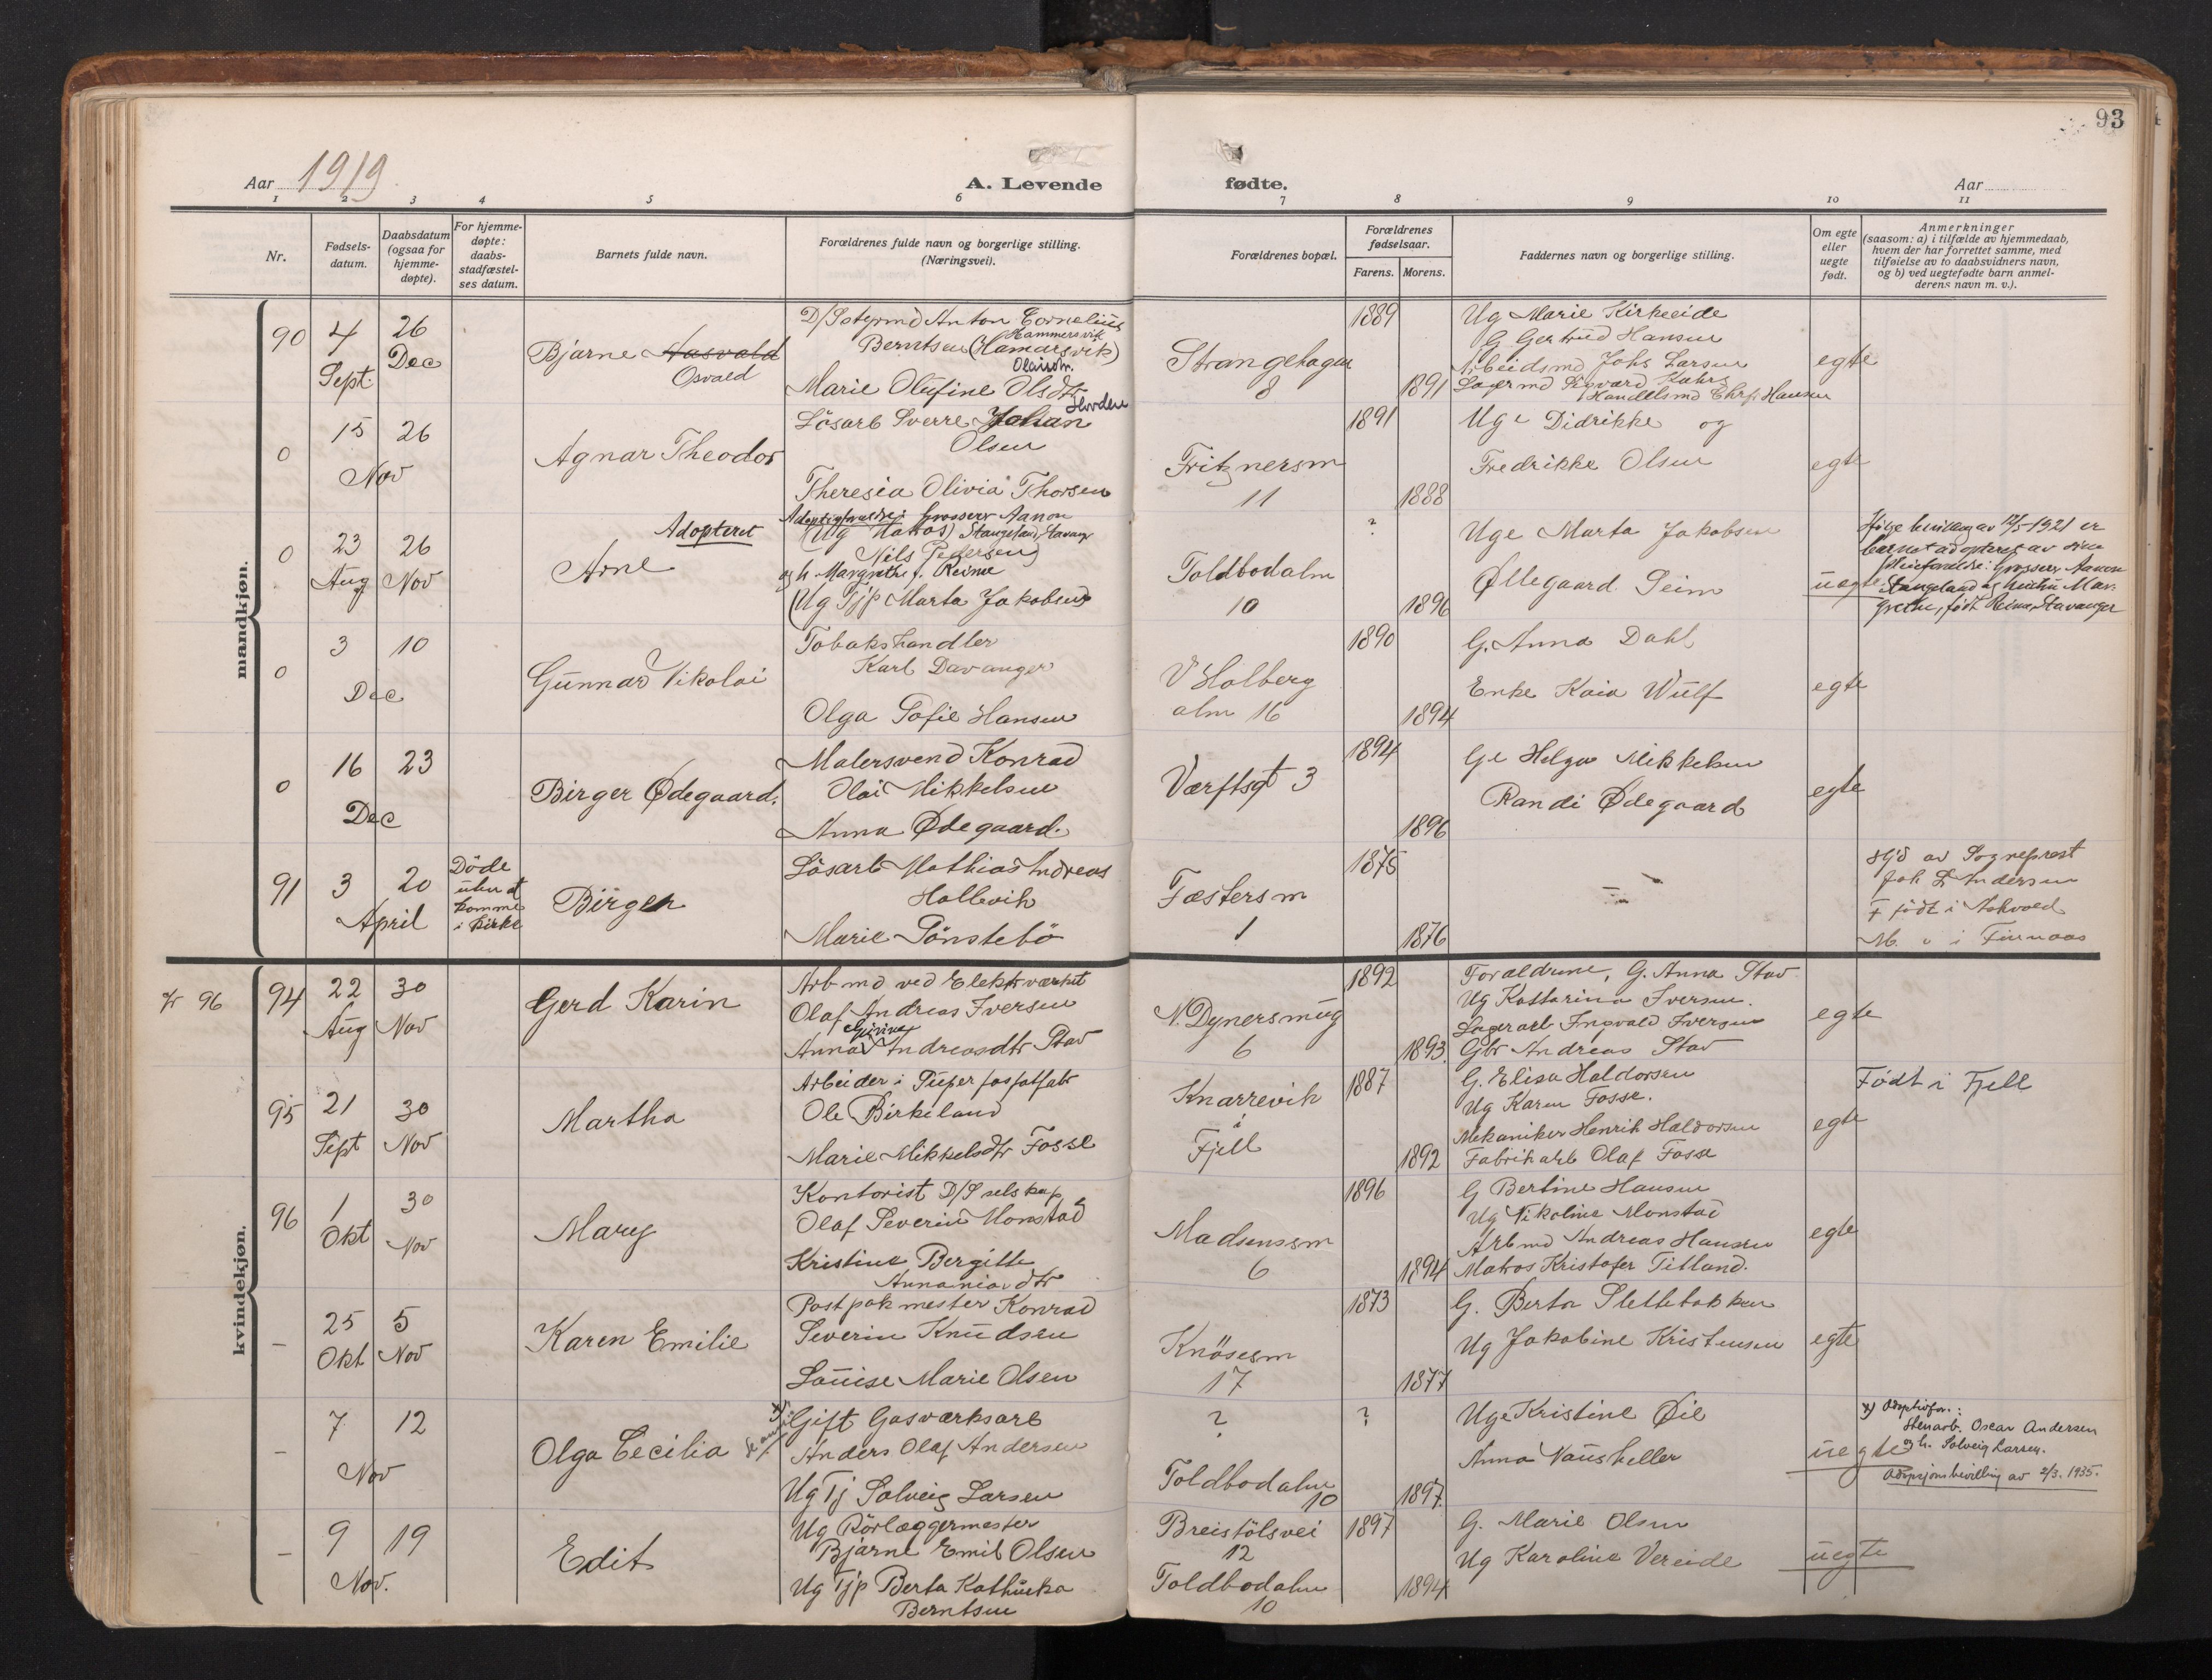 93
Aar 1919
A. Levende
fødte.
Aar
1 2 3 4 5 6 7 8 9 10 11
Nr.
Fødsels-
datum.
Daabsdatum
(ogsaa for
hjemme-
døpte).
For hjemme-
døpte:
daabs-
stadfæstel-
ses datum.
Barnets fulde navn.
Forældrenes fulde navn og borgerlige stilling.
(Næringsvei).
Forældrenes bopæl.
Forældrenes
fødselsaar.
Farens. Morens.
Faddernes navn og borgerlige stilling.
Om egte
eller
uegte
født.
Anmerkninger
(saasom: a) i tilfælde av hjemmedaab,
hvem der har forrettet samme, med
tilføielse av to daabsvidners navn,
og b) ved uegtefødte barn anmel-
derens navn m. v.).
mandkjøn.
90
4
Sept.
26
Dec
Bjarne Aasvald
Osvald
Anton Cornelius
Hammersvik
Berntsen (Hamarsvik)
Olaisdtr.
Marie Olufine Olsdtr
Strangehagen
8
1889
1891
Ug Marie Kirkeeide
G Gertrud Hansen
Arbeidsmd Johs Larsen
Lagermd Sigvard Kahrs
Handelsmd Chr. Hansen
egte
0
15
26
Nov
Agnar Theodor
Hovden
Lösarb Sverre Johan
Olsen
Theresia Olivia Thorsen
Fritznersm
11
1891
1888
Uge Didrikke og
Fredrikke Olsen
egte
0
23
Aug
26
Nov
Adopteret
Arne
Adoptivforældre: Grosserer Aanon
(Ug Matros) Stangeland, Stavanger
Nils Pedersen)
og h. Margrethe f. Reime
(Ug Tjp Marta Jakobsen)
Toldbodalm
10
?
1896
Uge Marta Jakobsen
Øllegaard Seim
uegte
Ifölge bevilling av 12/5-1921 er
barnet adopteret av sine
pleieforældre: Grosserer Aanon
Stangeland og hustru Mar-
grethe, født Reime, Stavanger
0
3
10
Dec
Gunnar Nikolai
Tobakshandler
Karl Davanger
Olga Sofie Hansen
V Holberg
alm 16
1890
1894
G. Anna Dahl
Enke Kaia Wulf
egte
0
16
23
Dec
Birger Ødegaard.
Malersvend Konrad
Olai Mikkelsen
Anna Ødegaard.
Værftsgt 3
1894
1896
Ge Helga Mikkelsen
Randi Ødegaard
egte
91
3
20
April
Döde
uten at
komme
i kirke
Birger
Lösarb Mathias Andreas
Hollevik
Marie Tönstebö
Fæstersm
1
1875
1876
Hjd av Sogneprest
Joh L Andersen
F födt i Askvold
M. " i Finnaas
kvindekjøn.
Nr 96
94
22
Aug
30
Nov
Gerd Karin
Arbmd ved Elektrværket
Olaf Andreas Iversen
Anna Andreasdtr Stav
N. Dynersmug
6
1892
1893
Forældrene, G. Anna Stav
Ug Kattarina Iversen.
Lagerarb Ingvald Iversen
Gbr Andreas Stav
egte
95
21
Sept
30
Nov
Martha
Arbeider i Superfosfatfabr
Ole Birkeland
Marie Mikkelsdtr Fosse
Knarrevik
i
Fjell
1887
1892
G. Elisa Haldorsen
Ug Karen Fosse.
Mekaniker Henrik Haldorsen
Fabrikarb Olaf Fosse
egte
Födt i Fjell
96
1
Okt
30
Nov
Mary
Kontorist D/S selskap
Olaf Severin Monstad
Kristine Bergitte
Annaniasdtr
Madsenssm
6
1896
1894
G Bertine Hansen
Ug Nikoline Monstad
Arbmd Andreas Hansen
Matros Kristofer Titland.
egte
–
25
Okt
5
Nov
Karen Emilie
Postpakmester Konrad
Severin Knudsen
Louise Marie Olsen
Knösesm
17
1873
1877
G. Berta Slettebakken
Ug Jakobine Kristensen
egte
–
7
12
Nov
Olga Cecilia
Gift Gasværksarb
Anders Olaf Andersen
Ug Tj Solveig Larsen
?
Toldbodalm
10
?
1897
Uge Kristine Øie
Anna Naustheller
uegte
x) Adoptivfor.:
Stenarb. Oscar Andersen
og h. Solveig Larsen.
Adopsjonsbevilling av 2/3. 1935.
–
9
19
Nov.
Edit
Ug Rörlæggermester
Bjarne Emil Olsen
Ug Tjp Berta Kathinka
Berntsen
Breistölsvei
12
Toldbodalm
10
1897
1894
G. Marie Olsen
Ug Karoline Vereide
uegte